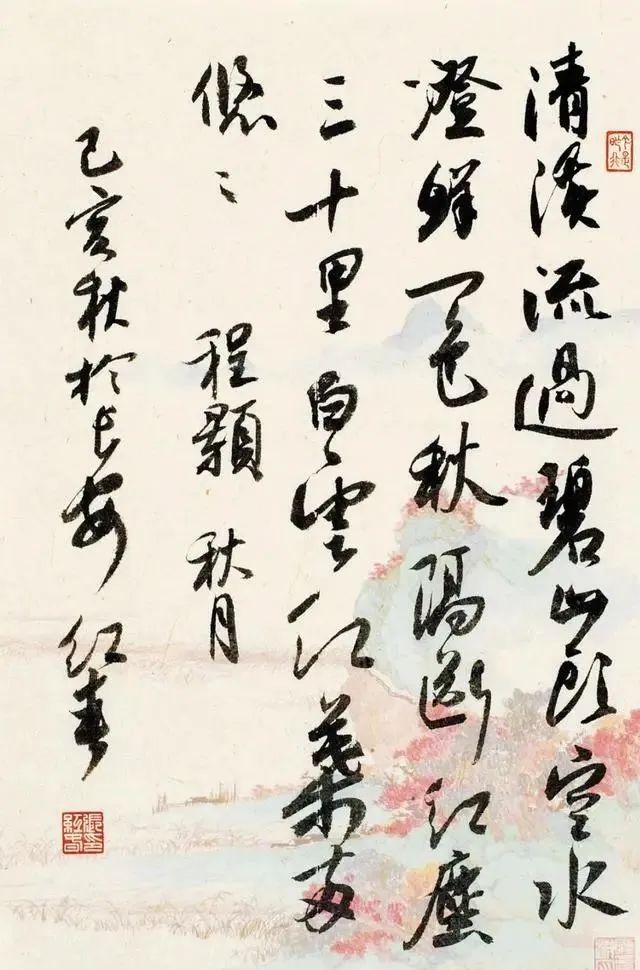 清溪流過碧山頭空水
澄鮮一色秋隔斷紅塵
三十里白雲紅葉兩
悠〻 程顥 秋月
己亥秋於長安 紅春